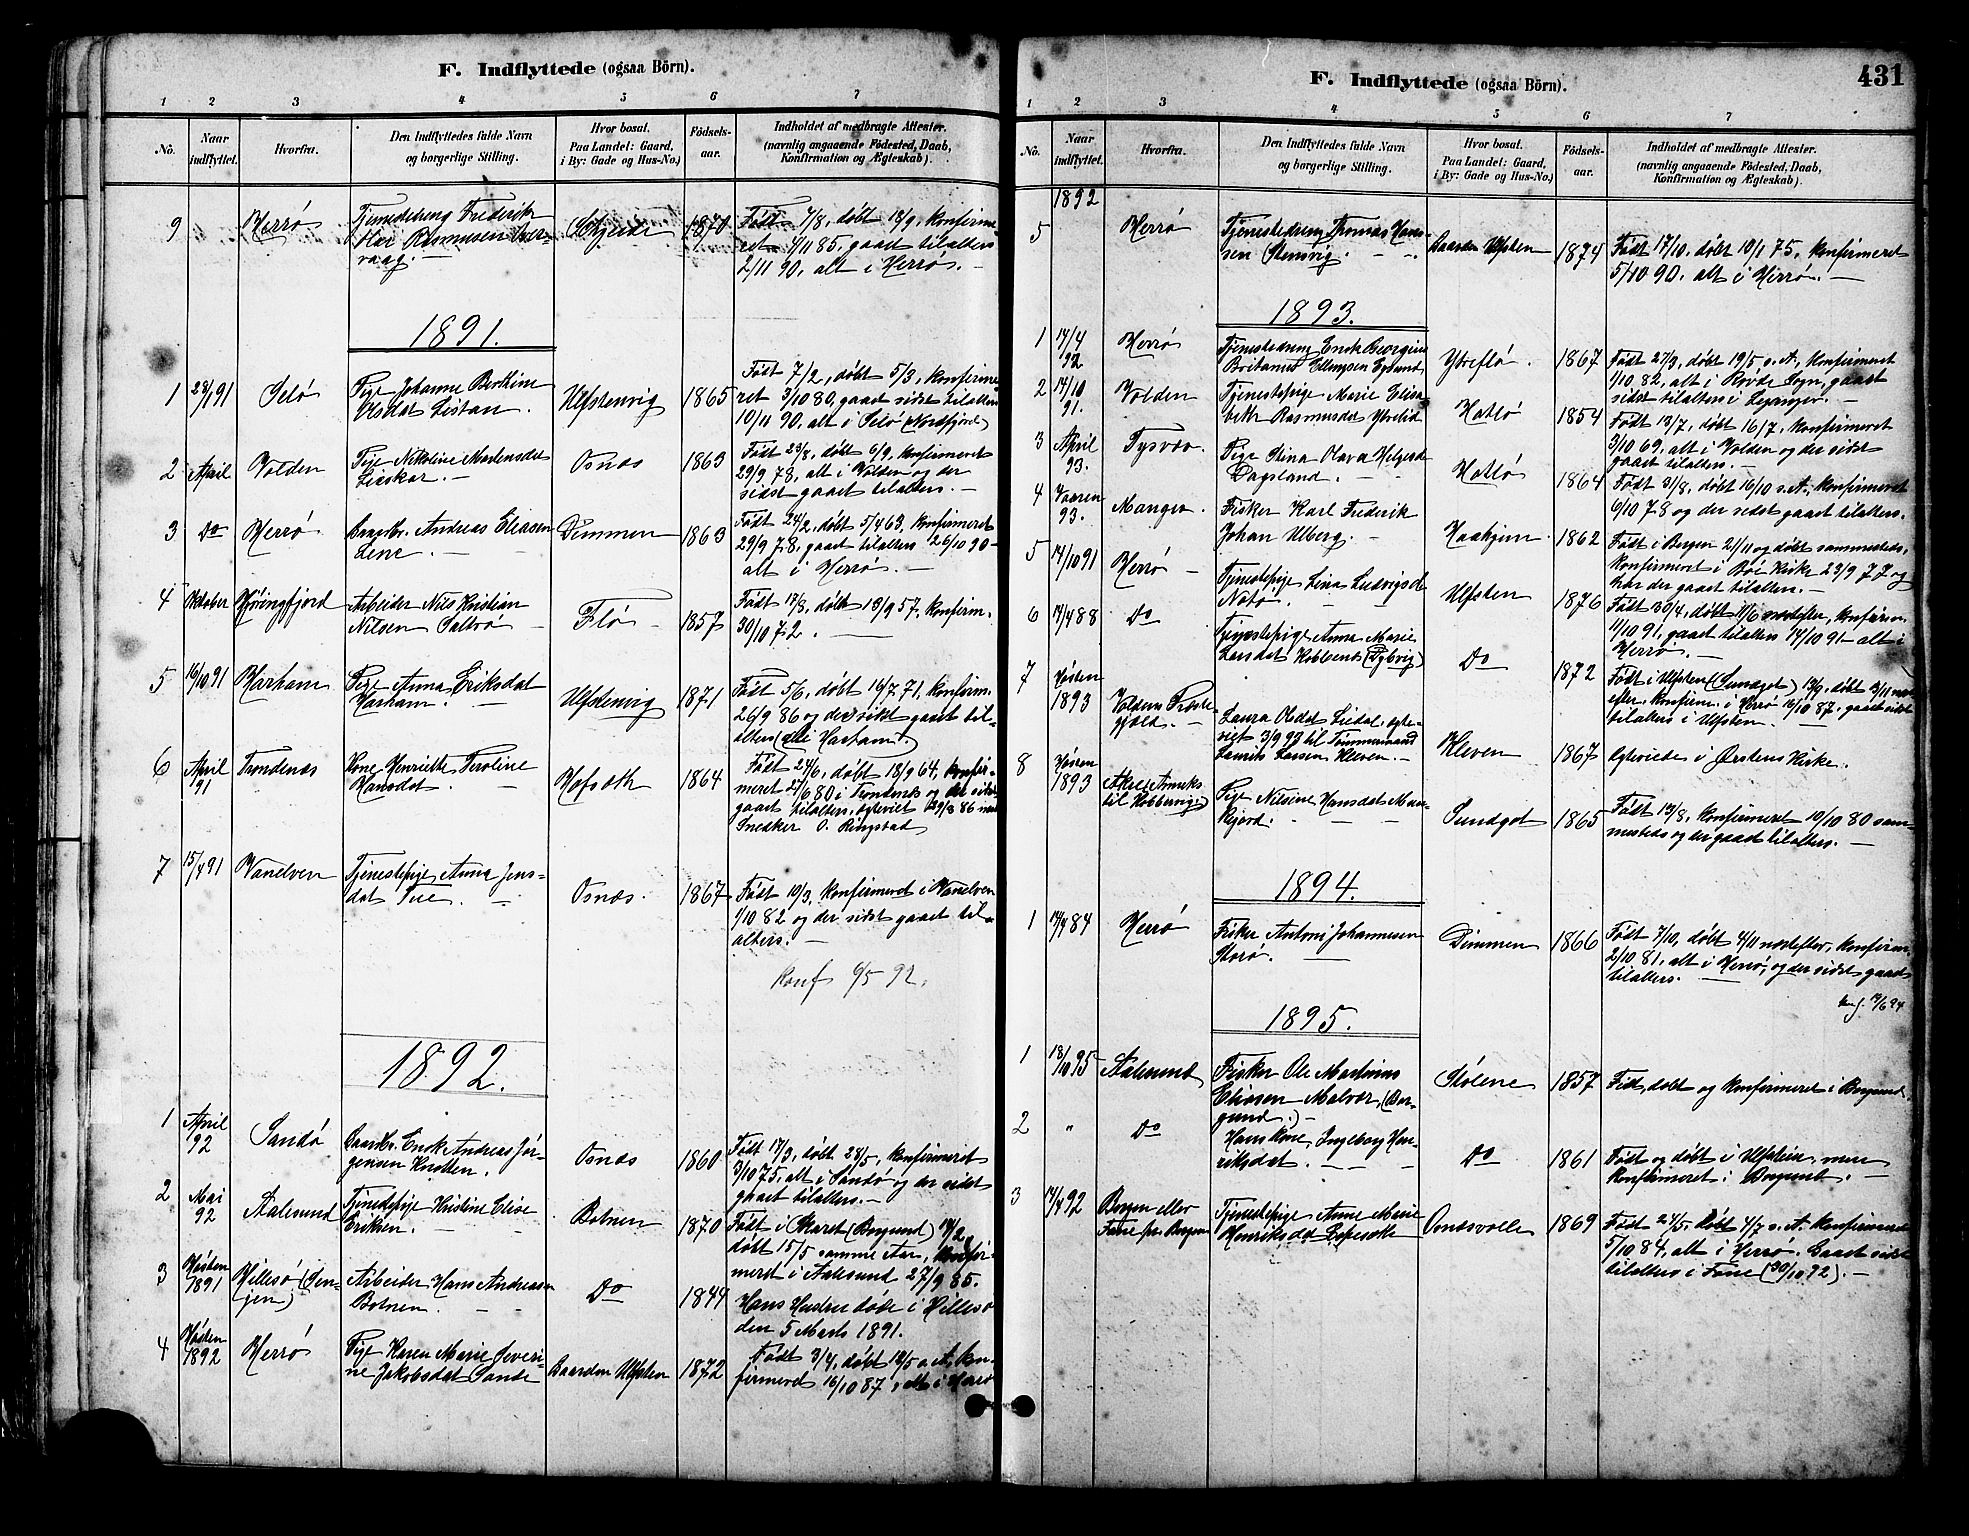 F. Indflyttede (ogsaa Börn).
1 2 3 4 5 6 7
No. Naar indflyttet. Hvorfra. Den Indflyttedes fulde Navn og borgerlige Stilling. Hvor bosat. Paa Landet: Gaard, i By: Gade og Hus-No.) Födsels-aar. Indholdet af medbragte Attester. (navnlig angaaende Födested, Daab, Konfirmation og Ægteskab).
9 Herrø Tjenestedreng Frederik
Rasmusen
vaag. 1870 Født 7/8, døbt 18/9, konfirme-
ret 1/11 85, gaaet tilalters
2/11 90, alt i Herrø.
1891.
1 28/1 91 Selø Pige Johanne Berthine
Olsdat Listau. Ulfstenvig 1865 Født 7/2, døbt 5/3, konfirme-
ret 3/10 80, gaaet sidst tilalters
10/11 90, alt i Selø (Nordfjord)
2 April Volden Pige Nikoline Mortensdat
Osnæs 1863 Født 23/8, døbt 6/9, konfirmeret
29/9 78, alt i Volden og der
sidst gaaet tilalters.
3 Do Herrø Andreas Eliasen
Lene. Dimmen 1863 Født 24/2, døbt 5/4 63, konfirmeret
29/9 78, gaaet tilalters 26/10 90
alt i Herrø.
4 Oktober Hjøringfjord Arbeider Nils Kristian
Nilsen Saltrø Flø 1857 Født 17/8, døbt 13/9 57, konfirm.
30/10 72.
5 16/10 91 Harham Pige Anna Eriksdat
Harham. Ulfstenvig 1871 Født 5/6, døbt 16/7 71, konfirm.
26/9 86 og der sidst gaaet til-
alters (alt i Harham).
6 April 91 Trondenæs Kone Henriette Peroline
Hansdat. Hofsæth 1864 Født 24/6, døbt 18/9 64, konfir-
meret 27/6 80 i Trondenæs og der sidst
gaaet tilalters, ægteviet 29/8 86 med
Snedker O. Ringstad
7 15/4 91 Vanelven Tjenestepige Anna Jens-
dat Tue. Osnæs. 1867 Født 10/3, konfirmeret i Vanelven
1/10 82 og der sidst gaaet til-
alters.
Konf 6/5 92.
1892.
1 April 92 Sandø Enok Andreas Jør-
gensen Knotten. Osnæs 1860 Født 17/3, døbt 28/5, konfirmeret
3/10 75, alt i Sandø og der sidst
gaaet tilalters.
2 Mai 92 Aalesund Tjenestepige Kristine Elise
Eriksen. Botnen 1870 Født i Skaret (Borgund) 14/2,
døbt 15/5 samme Aar, konfir-
meret i Aalesund 27/9 85.
3 Høsten 1891 Hillesø (Sen-
jen) Arbeider Hans Andreasen
Botnen. Do 1844 Hans Hustru døde i Hillesø
den 5 Marts 1891.
4 Høsten 1892 Herrø Pige Karen Marie Severi-
ne Jakobsdat Sande Gaarden Ulfsten 1872 Født 3/4, døbt 12/5 s. A., kon-
firmeret 16/10 87, alt i Herrø
F. Indflyttede (ogsaa Börn). 431
1 2 3 4 5 6 7
No. Naar indflyttet. Hvorfra. Den Indflyttedes fulde Navn og borgerlige Stilling. Hvor bosat. Paa Landet: Gaard, i By: Gade og Hus-No.) Födsels-aar. Indholdet af medbragte Attester. (navnlig angaaende Födested, Daab, Konfirmation og Ægteskab).
1892
5 Herrø Tjenestedreng Thomas Han-
sen Stensvig. Gaarden Ulfsten 1874 Født 17/10, døbt 10/1 75, konfirmeret
5/10 90, alt i Herrø.
1893.
1 17/4 92 Herrø Tjenestedreng Enok Georgius
Britanus Ellingsen Ytreflø. 1867 Født 27/3, døbt 19/5 s. A., konfirmeret
1/10 82, alt i Rovde Sogn, gaaet
sidst tilalters i
2 14/10 91. Volden Tjenestepige Marie Elisa-
beth Rasmusdat Hatlø 1854 Født 13/7, døbt 16/7, konfirmeret
3/10 69, alt i Volden og der sidst
gaaet tilalters.
3 April 93. Tysvær. Pige Stina Olava Helgesd
Dagsland. Hatlø 1864 Født 31/8, døbt 16/10 s. A., konfirmeret
6/10 78 og der sidst gaaet tilalters.
4 Vaaren 93. Manger. Fisker Karl Frederik
Johan Ulberg. 1862 Født i Bergen 21/11 og døbt sammesteds,
konfirmeret i Bøe Kirke 23/9 77 og
har der gaaet tilalters.
5 14/10 91 Herrø Tjenestepige Lina Ludvigsd
Notø. Ulfsten 1876 Født 30/4, døbt 11/6 næstefter, konfirm.
11/10 91, gaaet tilalters 14/10 91 alt i
Herrø.
6 14/4 88 Do Tjenestepige Anna Marie
Larsdat (Dybvig) Do 1872 Født i Ulfsten (Sundgot) 13/9, døbt 13/11 næst-
efter, konfirm. i Herrø 16/10 87, gaaet sidst
tilalters i Ulfsten.
7 Høsten 1893 Voldens Præste-
gjæld. Laura Olsdat Liedal, ægte-
viet 3/9 93 til Tømmermand
Laurits Larsen Kleven. Kleven 1867 Ægteviede i Ørstens Kirke.
8 Høsten 1893 Pige Nilsine Hansdat
Sundgot 1865 Født 13/8, konfirmeret 10/10 80 sam-
mesteds og der gaaet tilalters.
1894.
1 14/4 84 Herrø Fisker Antoni Johannesen
Storø. Dimmen 1866 Født 7/10, døbt 4/11 næstefter, konfirm.
2/10 81, alt i Herrø, og der sidst gaaet
tilalters.
1895.
1 18/10 95 Aalesund Fisker Ole Martinus
Eliasen Malvær, (Bor-
gund.) Stølene 1857 Født, døbt og konfirmeret i Borgund.
2 " Do Hans Kone, Ingeborg Hen-
riksdat. Do 1861 Født og døbt i Ulfstein, men
konfirmeret i Borgund.
3 14/4 92 Bergen eller
Fane pr. Bergen Tjenestepige Anne Marie
Henriksdat 1869 Født 24/5, døbt 4/7 s. A. konfirmeret
5/10 84, alt i Herrø. Gaaet sidst
tilalters i Fane (30/10 92).